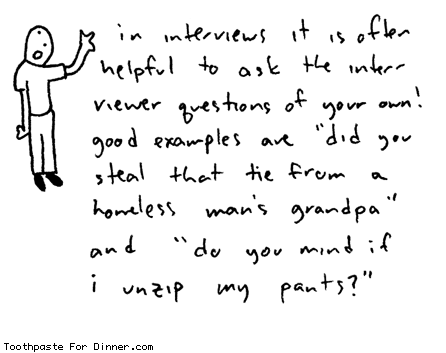 in interviews it is often
helpful to ask the inter-
viewer questions of your own!
good examples are "did you
steal that tie from a
homeless man's grandpa"
and "do you mind if
i unzip my pants?"
Toothpaste For Dinner.com